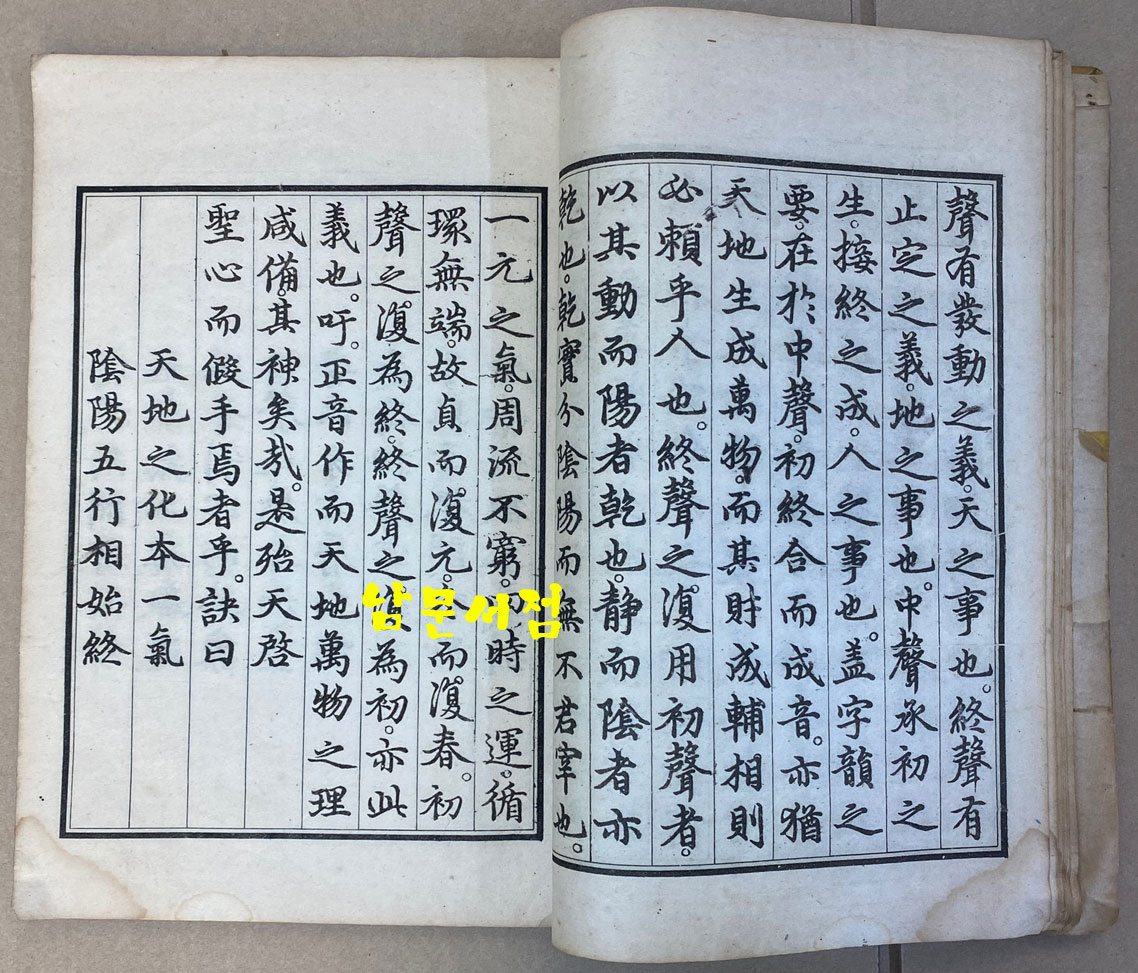 聲有發動之義。天之事也。終聲有
止定之義。地之事也。中聲承初之
生。接終之成。人之事也。盖字韻之
要。在於中聲。初終合而成音。亦猶
天地生成萬物。而其財成輔相則
必賴乎人也。終聲之復用初聲者。
以其動而陽者乾也。静而陰者亦
乾也。乾實分陰陽而無不君宰也。
一元之氣。周流不窮。四時之運。循
環無端。故貞而復元。冬而復春。初
聲之復為終。終聲之復為初。亦此
義也。吁。正音作而天地萬物之理
咸備。其神矣哉。是殆天啓
聖心而假手焉者乎。訣曰
天地之化本一氣
陰陽五行相始終
남문서점